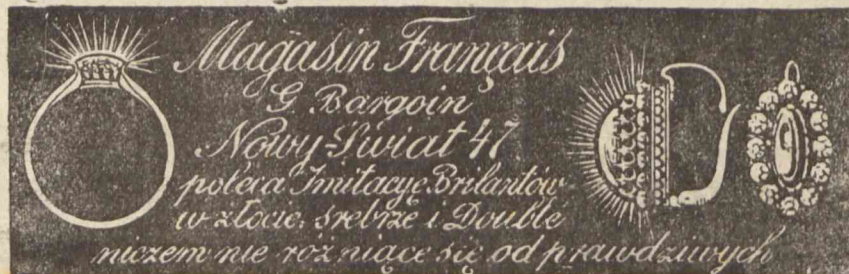 Magasin Français
G Bargoin
Nowy-Świat 47
poleca Imitacye Brilantów
w złocie, srebrze i Doublé
niczem nie rożniące się od prawdziwych